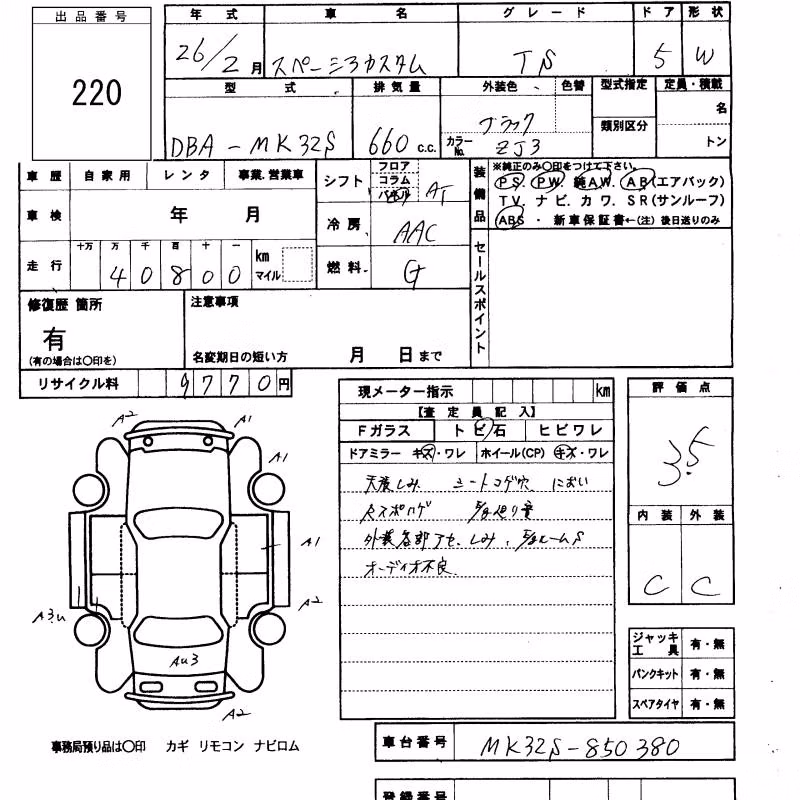 出品番号
220
年式 車名 グレード ドア 形状
26/2月 スペーシアカスタム TS 5 W
型式 排気量 外装色 色替 型式指定 定員・積載
DBA-MK32S 660 c.c. ブラック 名
カラーNo. ZJ3 類別区分 トン
車歴 自家用 レンタ 事業.営業車
車検 年 月
走行 十万 万 千 百 十 一
4 0 8 0 0 km マイル
シフト フロア コラム パネル AT
冷房 AAC
燃料 G
装備品 ※純正のみ〇印をつけて下さい。
PS. PW. 純AW. AB(エアバック)
TV. ナビ. カワ. SR(サンルーフ)
ABS ・ 新車保証書←(注) 後日送りのみ
セールスポイント
修復歴 箇所
有
(有の場合は〇印を)
注意事項
名変期日の短い方 月 日まで
リサイクル料 9770円
現メーター指示 km
【査定員記入】
Fガラス トビ石 ヒビワレ
ドアミラー キズ・ワレ ホイール(CP) キズ・ワレ
天張しみ シートコゲ穴 におい
外装各部アセ、しみ
オーディオ不良
評価点
3.5
内装 外装
C C
A2 A1
A1
A1
A2
A3.u
Au3
A2
ジャッキ工具 有・無
パンクキット 有・無
スペアタイヤ 有・無
事務局預り品は〇印 カギ リモコン ナビロム
車台番号 MK32S-850380
登録番号